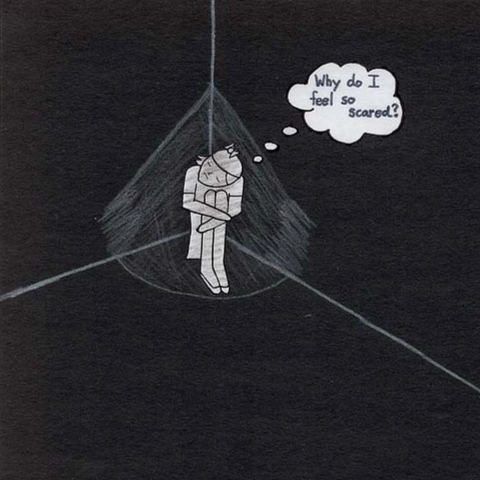 Why do I
feel so
scared?